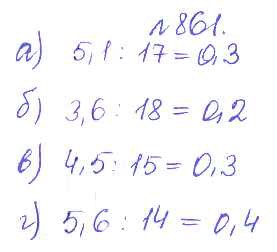 №861.
а) 5,1 : 17 = 0,3
б) 3,6 : 18 = 0,2
в) 4,5 : 15 = 0,3
г) 5,6 : 14 = 0,4